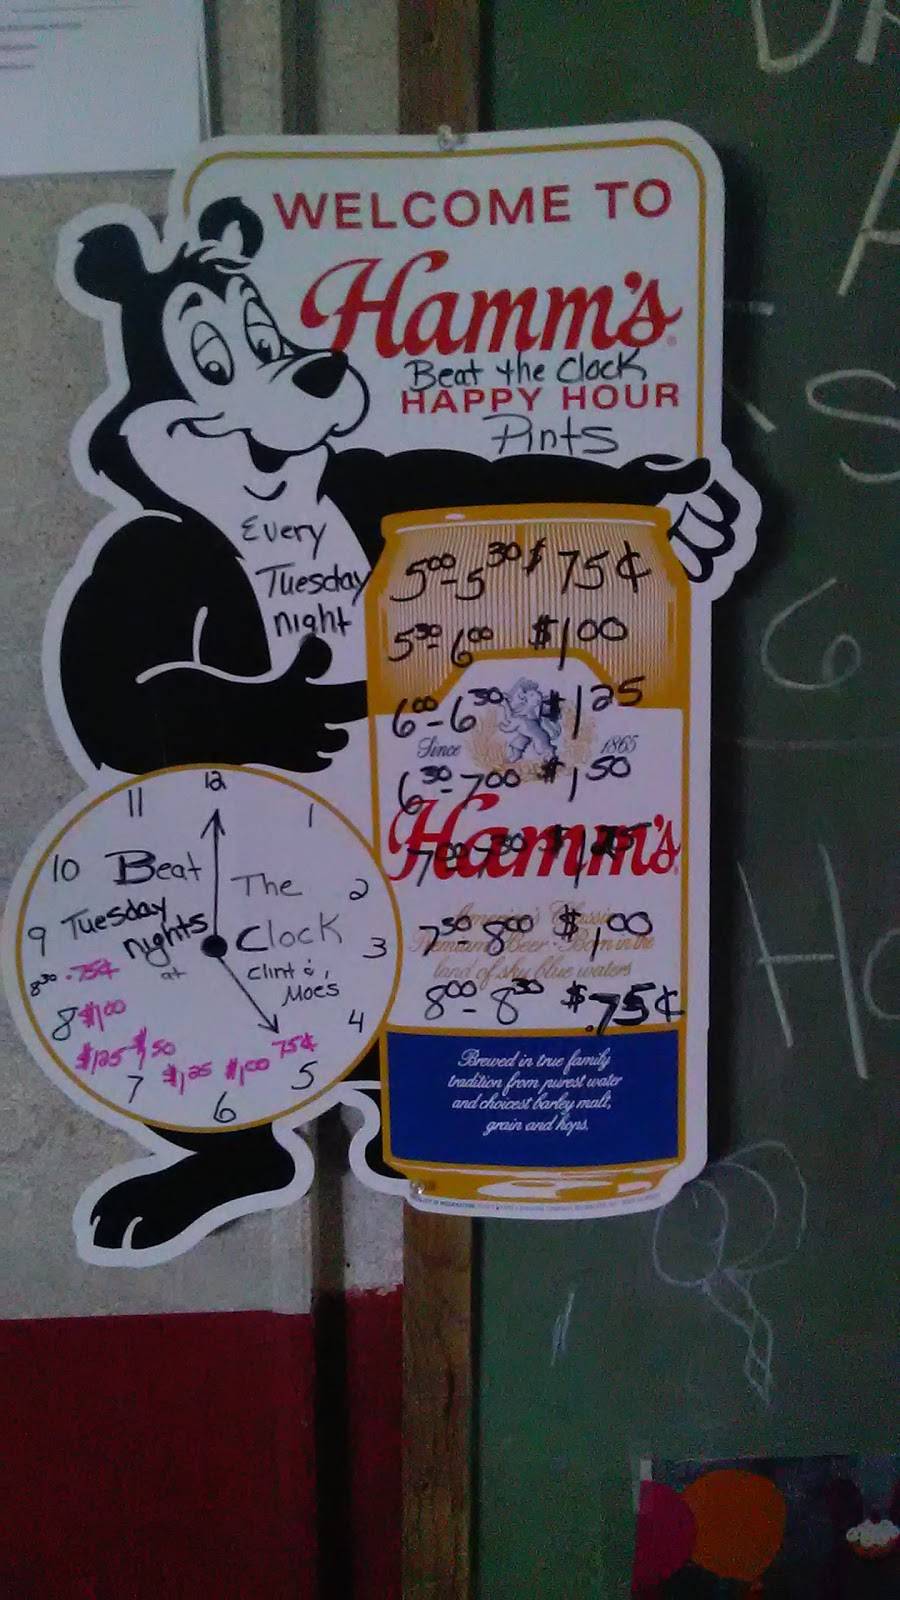 WELCOME TO
Hamm's
Beat the Clock
HAPPY HOUR
Pints
Every
Tuesday
night
5⁰⁰-5³⁰ $ 75¢
5³⁰-6⁰⁰ $1⁰⁰
6⁰⁰-6³⁰ $1²⁵
Since 1865
6³⁰-7⁰⁰ $1⁵⁰
Hamm's
7⁰⁰-7³⁰ $1.25
America's Classic
7³⁰-8⁰⁰ $1⁰⁰
Premium Beer · Born in the
land of sky blue waters
8⁰⁰-8³⁰ $.75¢
Brewed in true family
tradition from purest water
and choicest barley malt,
grain and hops.
12
11 1
10 Beat The 2
9 Tuesday nights Clock 3
at Clint &, Moes
8³⁰ .75¢
8 $1⁰⁰ 4
$1.25 $1.50 $1.25 $1⁰⁰ 75¢
7 6 5
S
6